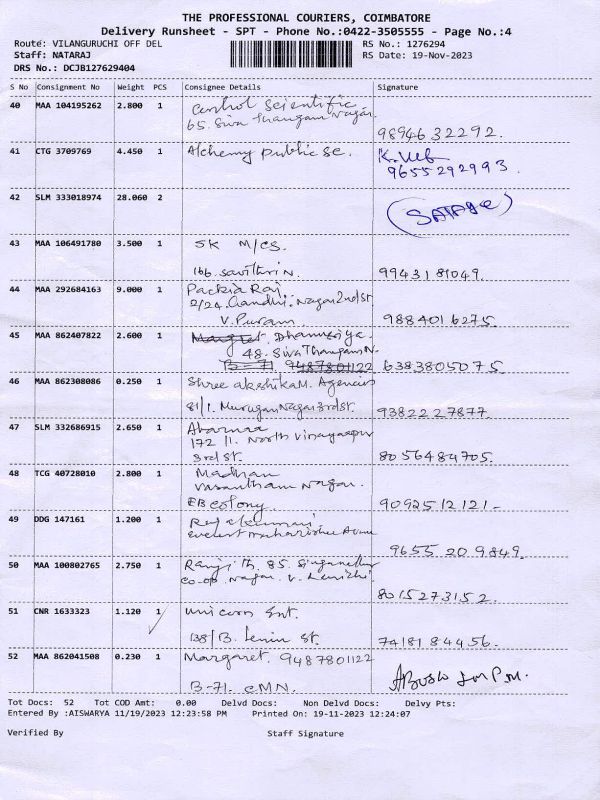 THE PROFESSIONAL COURIERS, COIMBATORE
Delivery Runsheet - SPT - Phone No.:0422-3505555 - Page No.:4
Route: VILANGURUCHI OFF DEL RS No.: 1276294
Staff: NATARAJ RS Date: 19-Nov-2023
DRS No.: DCJB127629404
S No Consignment No Weight PCS Consignee Details Signature
40 MAA 104195262 2.800 1 Control Scientific
65. Siva Thangam Nagar.
9894632292.
41 CTG 3709769 4.450 1 Alchemy public sc.
9655292993
42 SLM 333018974 28.060 2
43 MAA 106491780 3.500 1 SK M/CS.
166. Savithri N. 9943181049.
44 MAA 292684163 9.000 1 Packia Raj.
2/24. Gandhi. Nagar 2nd st
V. Puram. 9884016275.
45 MAA 862407822 2.600 1 Margret Dhanuriya.
48. Siva Thangam N.
B-71 9487801122 6383805075
46 MAA 862308086 0.250 1 Shree akshika M. Agencies
81/1. Murugan Nagar 3rd st. 9382227877
47 SLM 332686915 2.650 1
172/1. North vinayagapur
3rd st. 8056484705.
48 TCG 40728010 2.800 1 Madhan
vasantham Nagar.
EB colony. 9092512121-
49 DDG 147161 1.200 1 Rajakumari
9655209849.
50 MAA 100802765 2.750 1 Ranjith. 85.
co-op. Nagar. V.
8015273152.
51 CNR 1633323 1.120 1 unicorn Ent.
138/B. Lenin St. 7418184456.
52 MAA 862041508 0.230 1 Margaret. 9487801122
B-71. CMN.
Tot Docs: 52 Tot COD Amt: 0.00 Delvd Docs: Non Delvd Docs: Delvy Pts:
Entered By :AISWARYA 11/19/2023 12:23:58 PM Printed On: 19-11-2023 12:24:07
Verified By Staff Signature